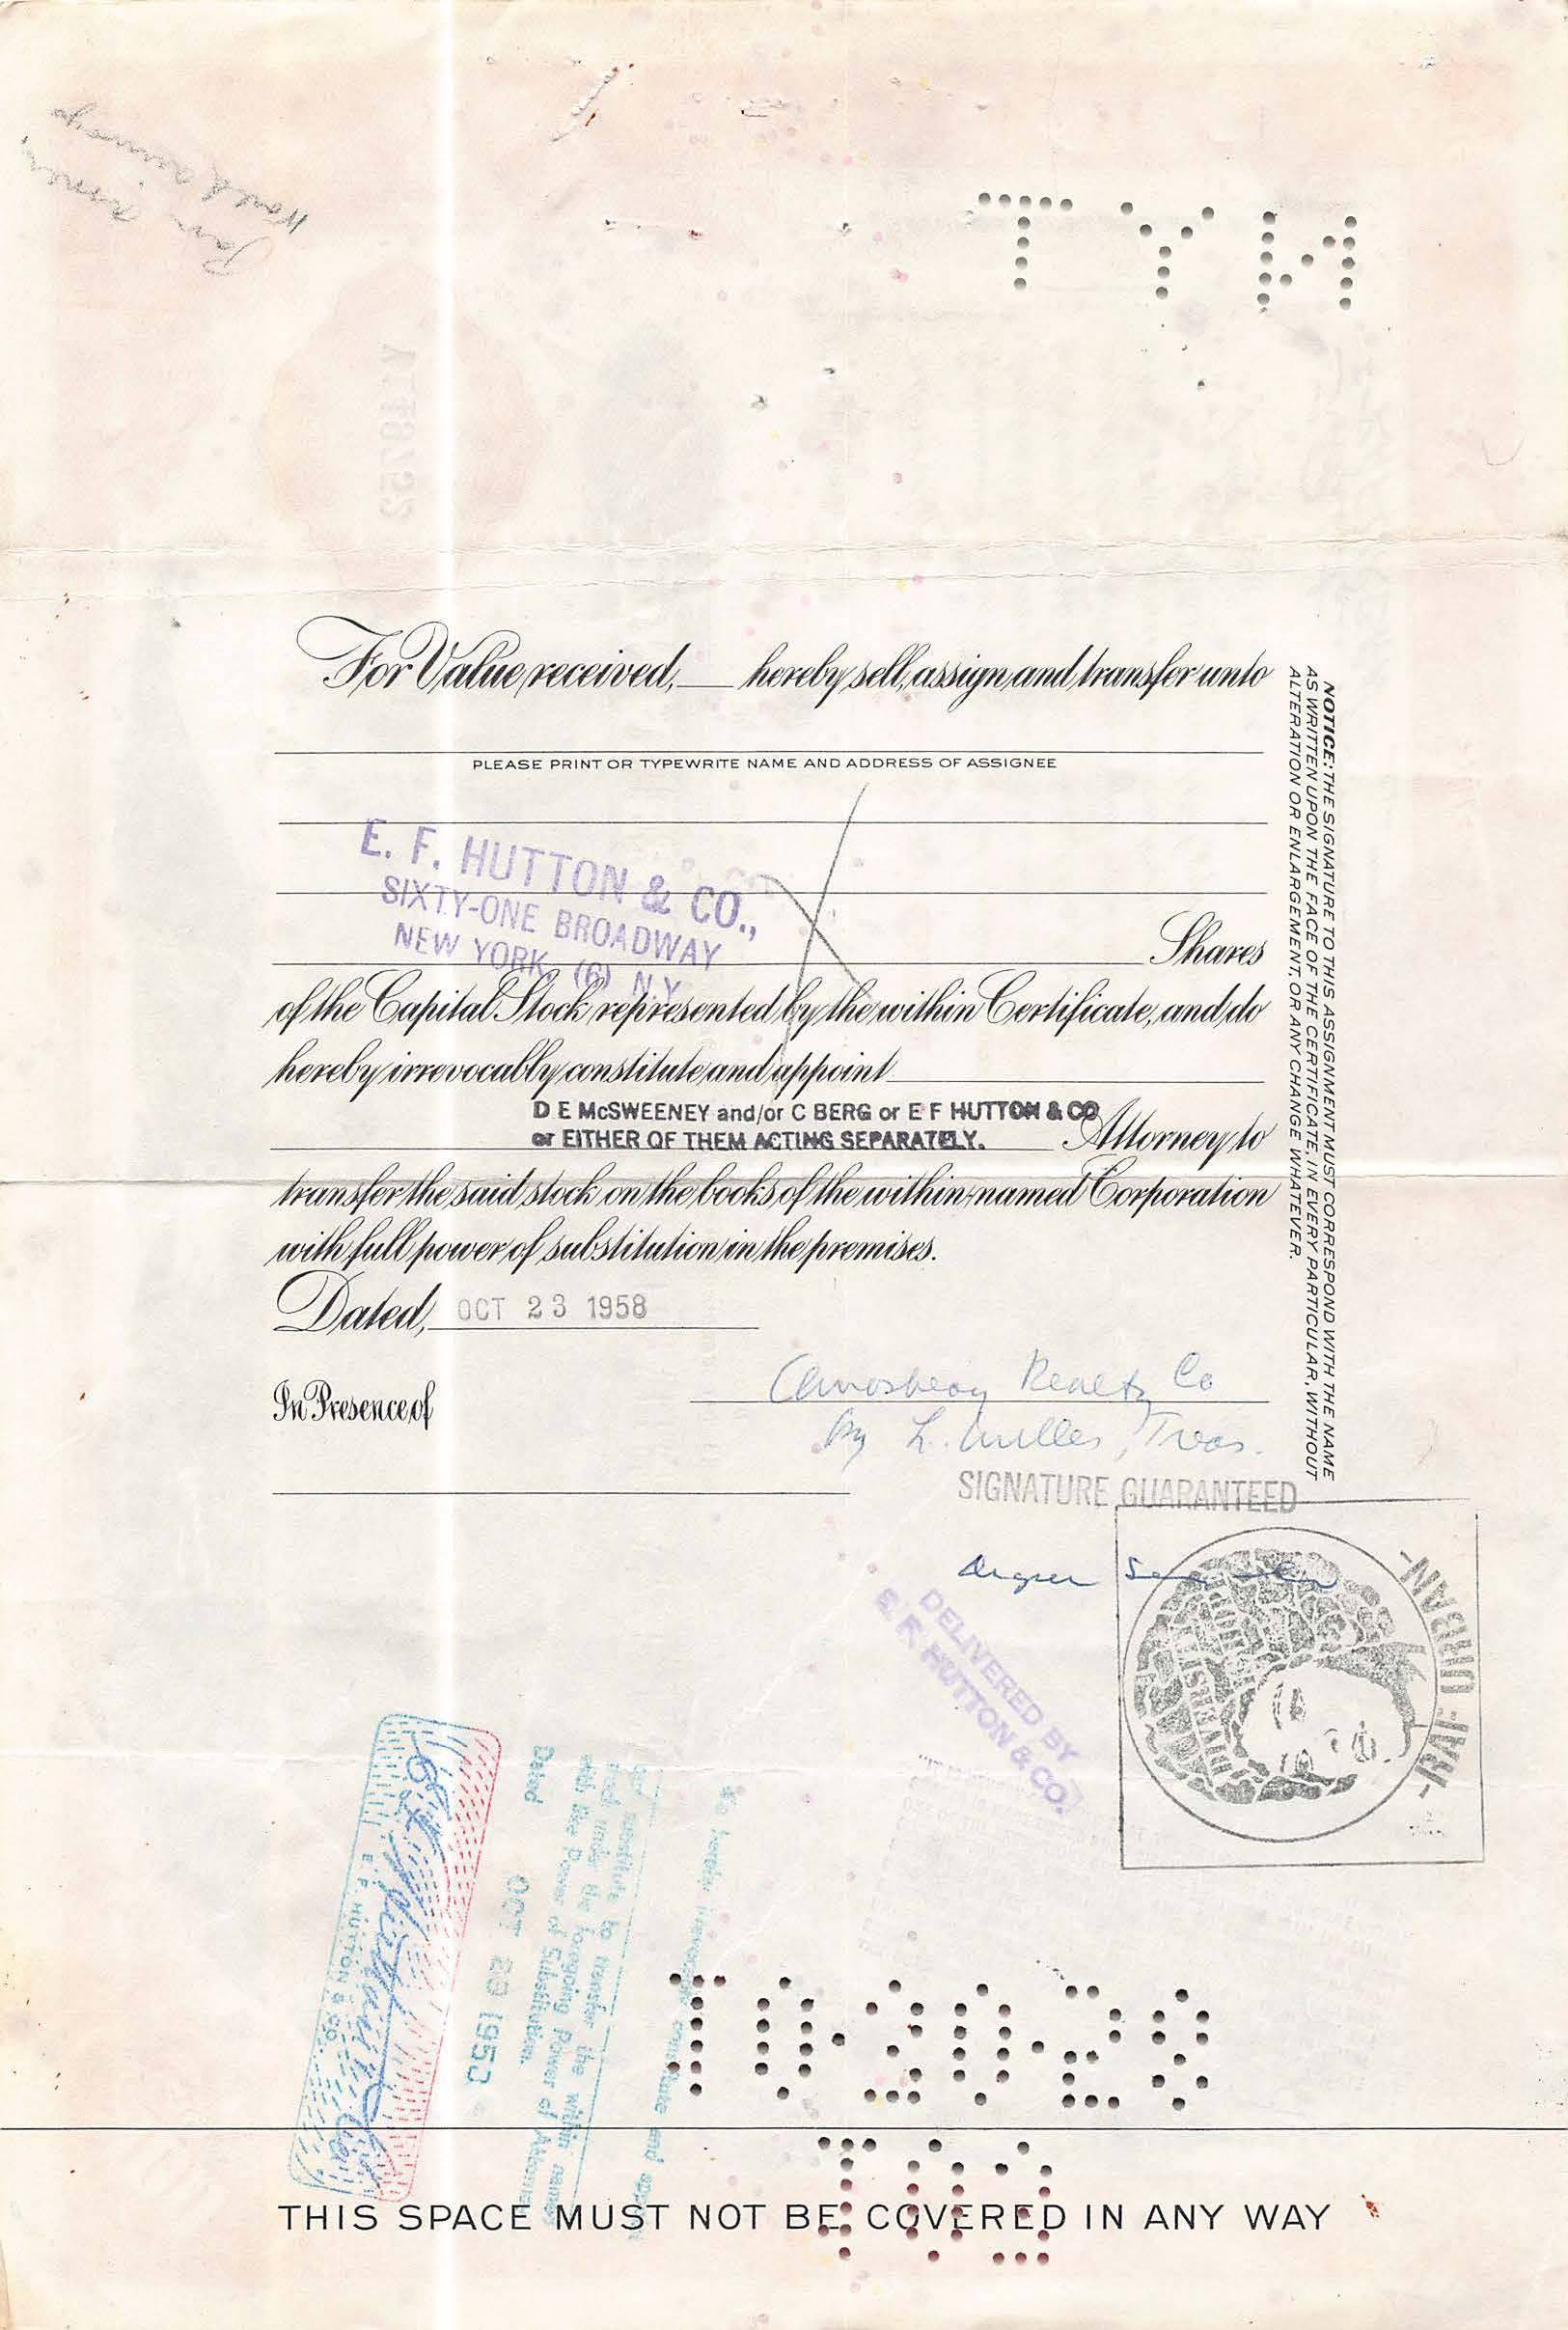 For Value received, ___ hereby sell, assign and transfer unto
PLEASE PRINT OR TYPEWRITE NAME AND ADDRESS OF ASSIGNEE
E. F. HUTTON & CO.,
SIXTY-ONE BROADWAY
NEW YORK, (6) N.Y.
Shares
of the Capital Stock represented by the within Certificate, and do
hereby irrevocably constitute and appoint
D E McSWEENEY and/or C BERG or E F HUTTON & CO
or EITHER OF THEM ACTING SEPARATELY.
Attorney to
transfer the said stock on the books of the within-named Corporation
with full power of substitution in the premises.
Dated, OCT 23 1958
In Presence of
Realty Co
By L. Miller, Treas.
SIGNATURE GUARANTEED
NOTICE: THE SIGNATURE TO THIS ASSIGNMENT MUST CORRESPOND WITH THE NAME
AS WRITTEN UPON THE FACE OF THE CERTIFICATE, IN EVERY PARTICULAR, WITHOUT
ALTERATION OR ENLARGEMENT, OR ANY CHANGE WHATEVER.
DELIVERED BY
E. F. HUTTON & CO.
-RAF URBAN-
do hereby irrevocably constitute and
substitute to transfer the within named
under the foregoing Power of Attorney
with like Power of Substitution.
Dated
OCT 29 195
E. F. HUTTON & CO.
THIS SPACE MUST NOT BE COVERED IN ANY WAY